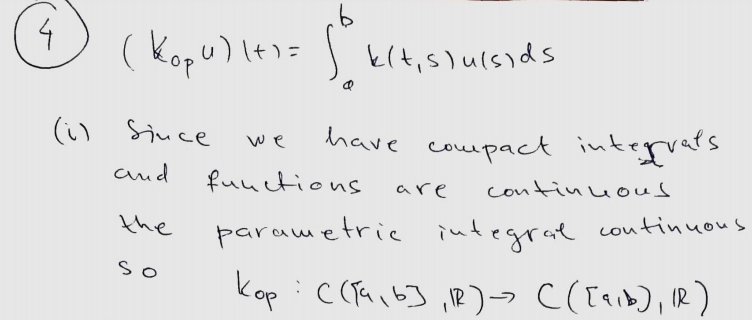 4 (K_op u)(t) = ∫_a^b k(t,s)u(s)ds
(i) Since we have compact integrals
and functions are continuous
the parametric integral continuous
so
K_op : C([a,b], ℝ) → C([a,b], ℝ)